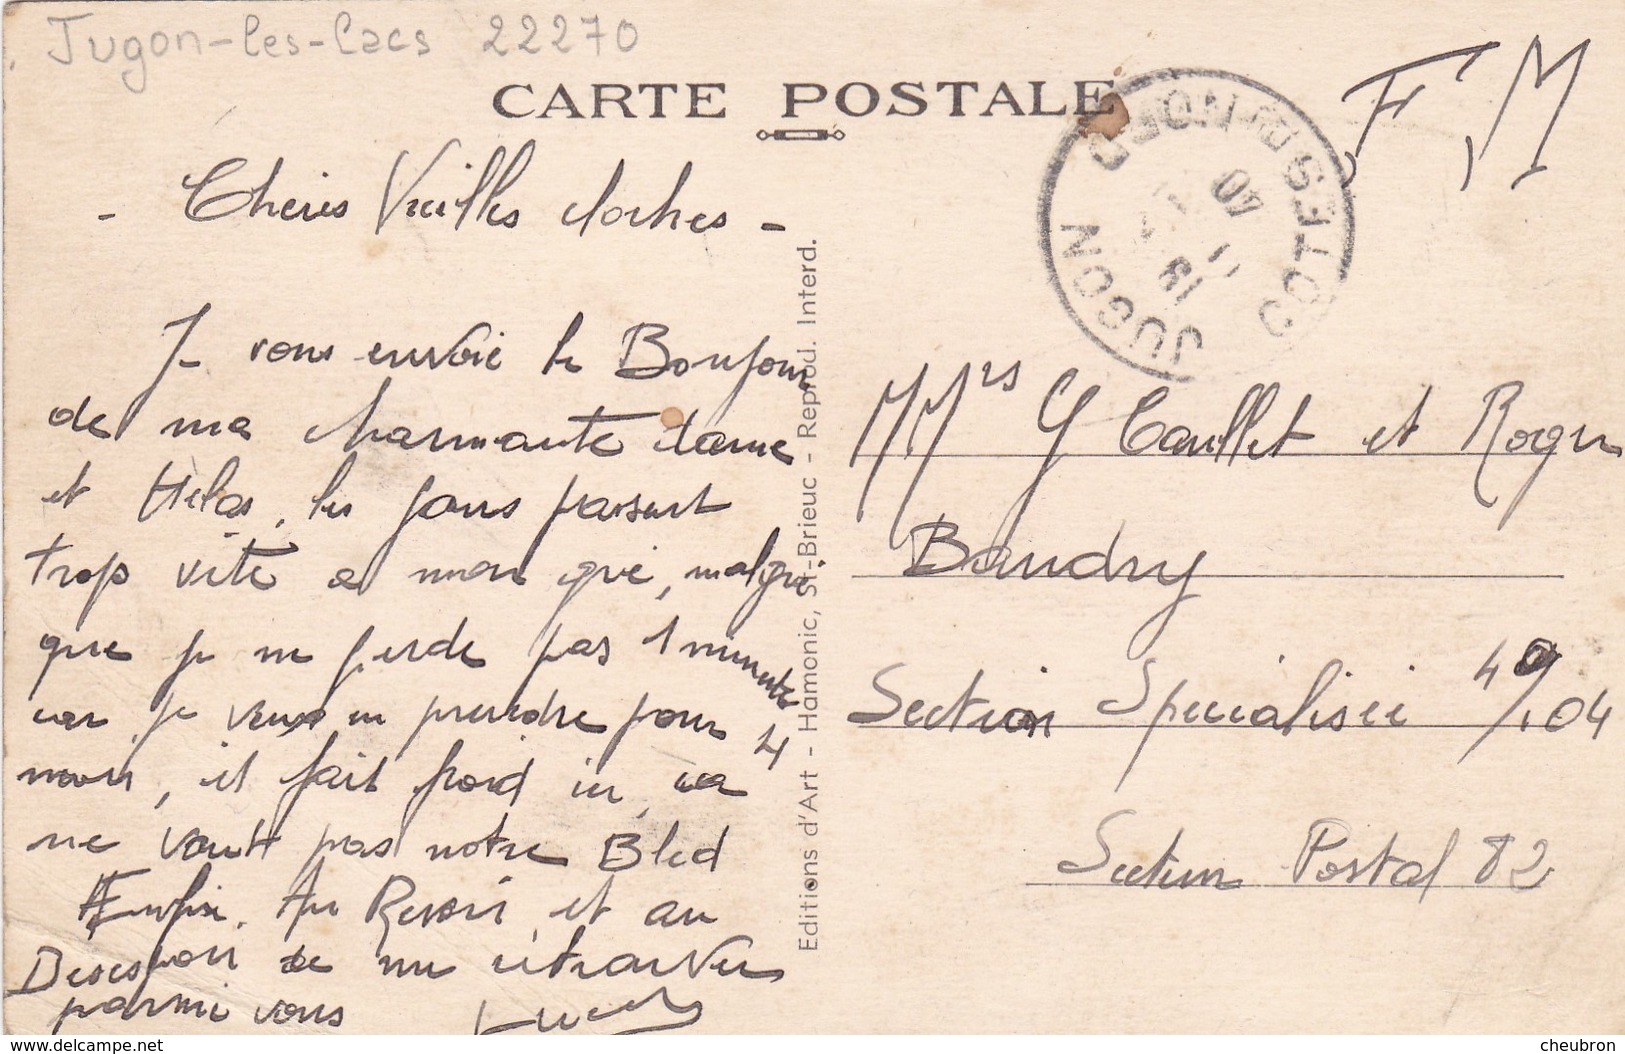 Jugon-les-lacs 22270
CARTE POSTALE
F, M
JUGON COTES-DU-NORD
40
- Chéries Vieilles cloches -
Je vous envoie le Bonjour
de ma charmante dame
et Hélas, les jours passent
trop vite à mon gré, malgré
que je ne perde pas 1 minute
car je veux en prendre pour 4
mois, il fait froid ici, ca
ne vaut pas notre Bled
Enfin. Au Revoir et au
Desespoir de me retrouver
parmi vous
MMrs G Caullet et Roger
Baudry
Section Specialisée 40/104
Section Postal 82
Editions d'Art - Hamonic, St-Brieuc - Reprod. Interd.
www.delcampe.net
cheubron